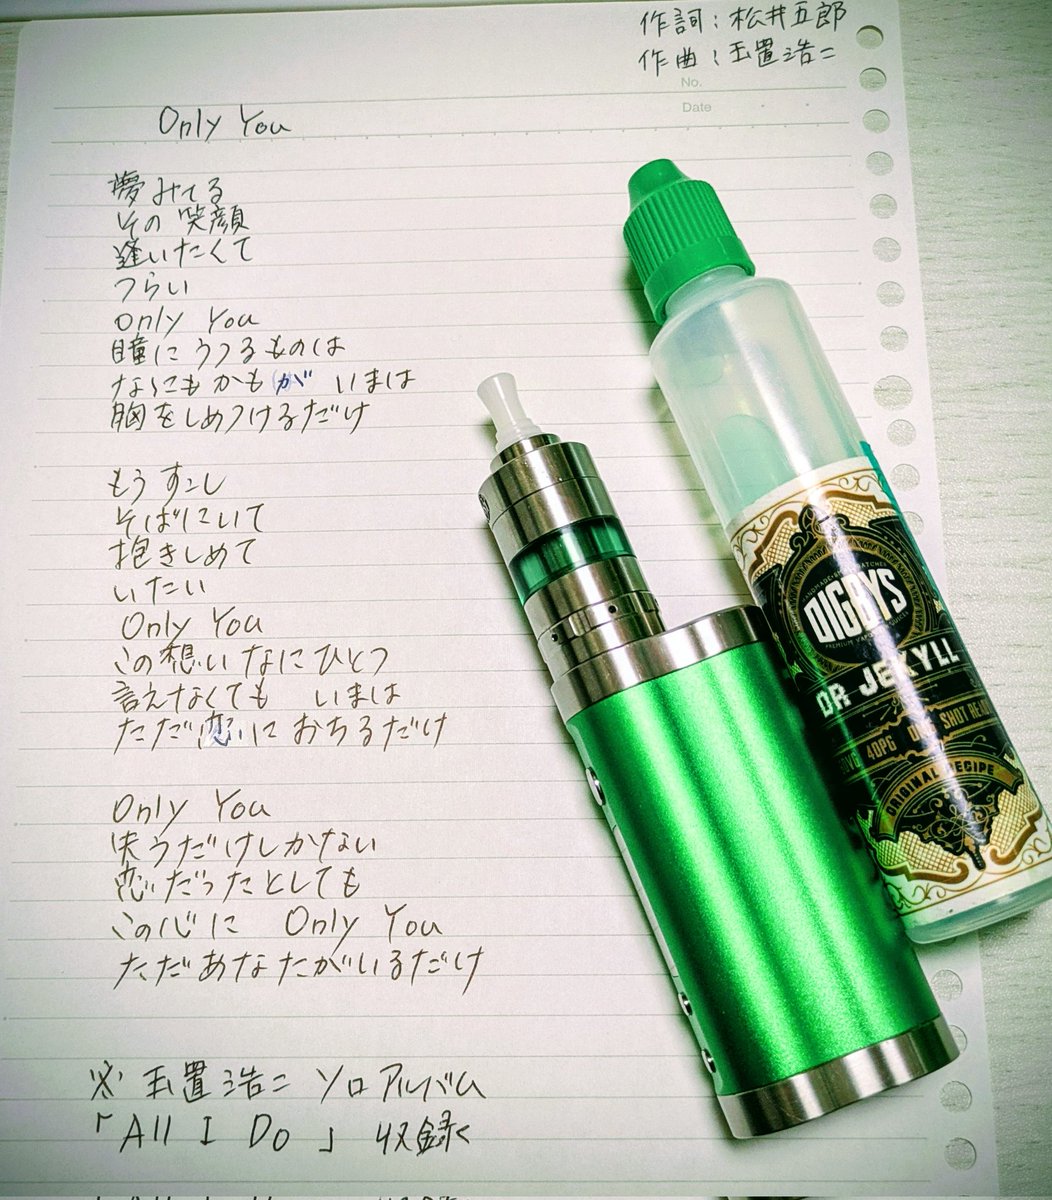 作詞：松井五郎
作曲：玉置浩二
No.
Date
Only You
夢みてる
その笑顔
逢いたくて
つらい
Only You
瞳にうつるものは
なにもかもが いまは
胸をしめつけるだけ
もうすこし
そばにいて
抱きしめて
いたい
Only You
この想いなにひとつ
言えなくても いまは
ただ恋におちるだけ
Only You
失うだけしかない
恋だったとしても
この心に Only You
ただあなたがいるだけ
※玉置浩二 ソロアルバム
「All I Do」収録く
DIGBYS
DR JEKYLL
40PG
SHOT
ORIGINAL RECIPE